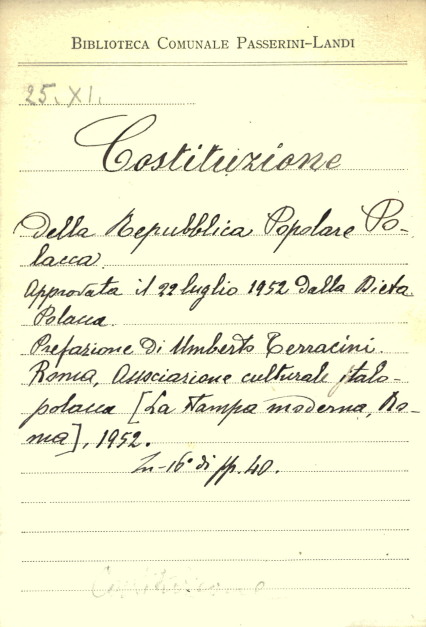 BIBLIOTECA COMUNALE PASSERINI-LANDI
25. XI.
Costituzione
della Repubblica Popolare Po-
lacca.
Approvata il 22 luglio 1952 dalla Dieta
Polacca.
Prefazione di Umberto Terracini.
Roma, Associazione culturale italo-
polacca [La Stampa moderna, Ro-
ma], 1952.
In-16° di pp. 40.